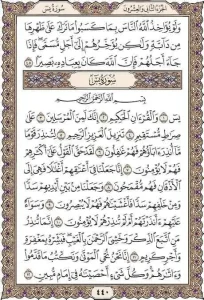 الجزء الثاني والعشرون سورة يس
وَلَوْ يُؤَاخِذُ ٱللَّهُ ٱلنَّاسَ بِمَا كَسَبُوا۟ مَا تَرَكَ عَلَىٰ ظَهْرِهَا
مِن دَآبَّةٍ وَلَٰكِن يُؤَخِّرُهُمْ إِلَىٰٓ أَجَلٍ مُّسَمًّى فَإِذَا
جَآءَ أَجَلُهُمْ فَإِنَّ ٱللَّهَ كَانَ بِعِبَادِهِۦ بَصِيرًۢا ٤٥
سورة يس
بِسْمِ ٱللَّهِ ٱلرَّحْمَٰنِ ٱلرَّحِيمِ
يسٓ ١ وَٱلْقُرْءَانِ ٱلْحَكِيمِ ٢ إِنَّكَ لَمِنَ ٱلْمُرْسَلِينَ ٣ عَلَىٰ
صِرَٰطٍ مُّسْتَقِيمٍ ٤ تَنزِيلَ ٱلْعَزِيزِ ٱلرَّحِيمِ ٥ لِتُنذِرَ قَوْمًا
مَّآ أُنذِرَ ءَابَآؤُهُمْ فَهُمْ غَٰفِلُونَ ٦ لَقَدْ حَقَّ ٱلْقَوْلُ عَلَىٰٓ أَكْثَرِهِمْ
فَهُمْ لَا يُؤْمِنُونَ ٧ إِنَّا جَعَلْنَا فِىٓ أَعْنَٰقِهِمْ أَغْلَٰلًا فَهِىَ إِلَى
ٱلْأَذْقَانِ فَهُم مُّقْمَحُونَ ٨ وَجَعَلْنَا مِنۢ بَيْنِ أَيْدِيهِمْ سَدًّا
وَمِنْ خَلْفِهِمْ سَدًّا فَأَغْشَيْنَٰهُمْ فَهُمْ لَا يُبْصِرُونَ ٩ وَسَوَآءٌ
عَلَيْهِمْ ءَأَنذَرْتَهُمْ أَمْ لَمْ تُنذِرْهُمْ لَا يُؤْمِنُونَ ١٠ إِنَّمَا تُنذِرُ
مَنِ ٱتَّبَعَ ٱلذِّكْرَ وَخَشِىَ ٱلرَّحْمَٰنَ بِٱلْغَيْبِ فَبَشِّرْهُ بِمَغْفِرَةٍ وَأَجْرٍ
كَرِيمٍ ١١ إِنَّا نَحْنُ نُحْىِ ٱلْمَوْتَىٰ وَنَكْتُبُ مَا قَدَّمُوا۟
وَءَاثَٰرَهُمْ وَكُلَّ شَىْءٍ أَحْصَيْنَٰهُ فِىٓ إِمَامٍ مُّبِينٍ ١٢
٤٤٠